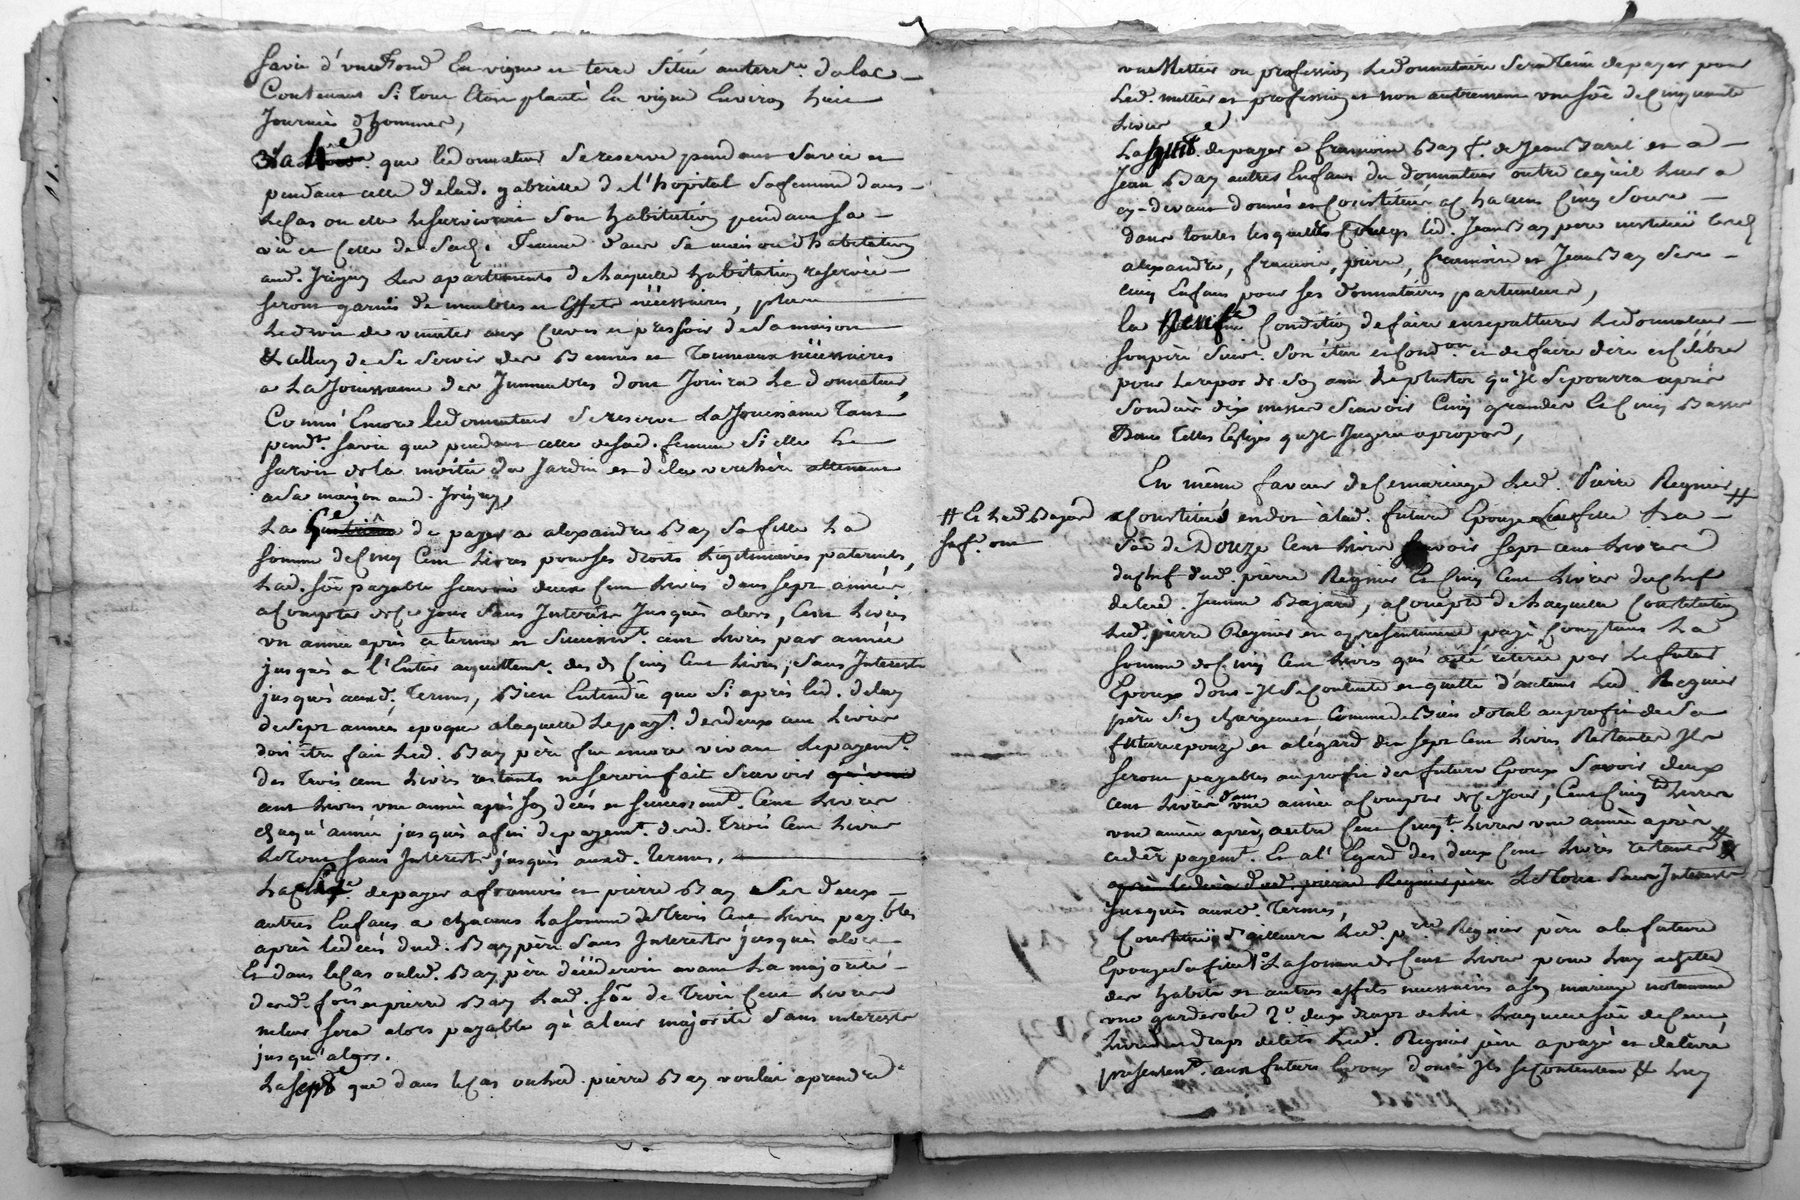 sa vie d'un fond en vigne et terre situé au terr.re du lac
contenant si tout etoit planté en vigne environ huit
journées d'hommes,
La 4e que ledonnateur se reserve pendant sa vie et
pendant celle de lad. gabrielle de l'hopital sa femme dans
le cas ou elle le survivroit son habitation pendant sa
vie et celle de sad. femme dans sa maison d'habitation
aud. Irigny les apartements de laquelle habitation reservée
seront garnis de meubles et effets nécessaires, plus
le droit de cuves et pressoir de sa maison
& celuy de se servir des Bennes et Tonneaux nécessaires
a la jouissance des immeubles dont jouira le donnateur,
comme encore ledonnateur se reserve la jouissance tant
pend.t sa vie que pendant celle de sad. femme si elle le
survit de la moitié du jardin et de la verchère attenant
a sa maison aud. Irigny,
La 5e de payer a alexandre Bay sa fille la
somme de cinq cent livres pour ses droits légitimaires paternels,
lad. sõe payable scavoir deux cent livres dans sept années
a compter de ce jour sans interets jusques alors, cent livres
un année après ce terme et successiv.t cent livres par année
jusques a l'entier aquittem.t desd. cinq cent livres, sans interets
jusques auxd. termes, Bien entendu que si après led. delay
de sept années epoque a laquelle le pay.t des deux cent livres
doit être fait led. Bay père fut encore vivant le payem.t
des trois cent livres restants ne seroit fait scavoir
cent livres une année après son décès et successivem.t cent livres
chaqu'année jusques a fin de payem.t desd. trois cent livres
le tout sans interets jusques auxd. termes.
La 6e de payer a francois et pierre Bay ses deux
autres enfans a chacuns la somme de trois cent livres payables
après le decès dud. Bay père sans interets jusques alors
Et dans le cas ou led. Bay père décéderoit avant la majorité
desd. fois et pierre Bay lad. sõe de trois cent livres
ne leur sera alors payable qu'a leur majorité sans interets
jusqu'alors.
La septe que dans le cas ou led. pierre Bay voulut aprendre
un Metier ou profession le donnataire sera tenu de payer pour
led. metier et profession et non autrement une sõe de cinquante
livres
La huite de payer a francoise Bay f.e de Jean Baril et a
Jean Bay autres enfans du donnateur outre ce qu'il leur a
cy-devant donnés et constitués a chacuns cinq sous
dans toutes lesquelles led. Jean Bay père institue lesd.
alexandre, francois, pierre, francoise et Jean Bay ses
cinq enfans pour ses donnataires particuliers,
la neufe condition de faire ensepulturer le donnateur
son père suiv.t son état et cond.on et de faire dire et célébrer
pour le repos de son ame le plustot qu'il se pourra après
son decès dix messes scavoir cinq grandes et cinq Basses
dans telles eglizes qu'il jugera apropos,
En même faveur de ce mariage led. Pierre Regnier #
# Et lad. Bajard
sa f.e ont
constitué en dot a lad. future epouze sa fille la
sõe de Douze cent livres scavoir sept cent livres
du chef dud. pierre Regnier Et cinq cent livres du chef
de lad. Bajard, a compte de laquelle constitution
led. pierre Regnier en a presentement payé comptant la
somme de cinq cent livres qui a été retirée par le futur
epoux dont il se contente et quitte d'autant led. Regnier
père s'en chargeant comme de Bien dotal au profit de sa
future epouze et a l'égard des sept cent livres restantes ils
seront payables au profit des futurs epoux scavoir deux
cent livres dans une année a compter de ce jour, cent cinq.te livres
une année après, autre cent cinq.te livres une année après
ce der payem.t. Et a l'égard des deux cent livres restantes #
après le decès dud. pierre Regnier père le tout sans interets
jusques auxd. termes,
Constitue d'ailleurs led. pierre Regnier père a la future
epouze sa fille 1o La somme de cent livres pour luy
des habits et autres effets necessaires a son mariage
une garderobe 2o deux draps de lit
livres draps de lits led. Regnier père a payé et delivré
présentem.t aux futurs epoux dont ils se contentent & luy